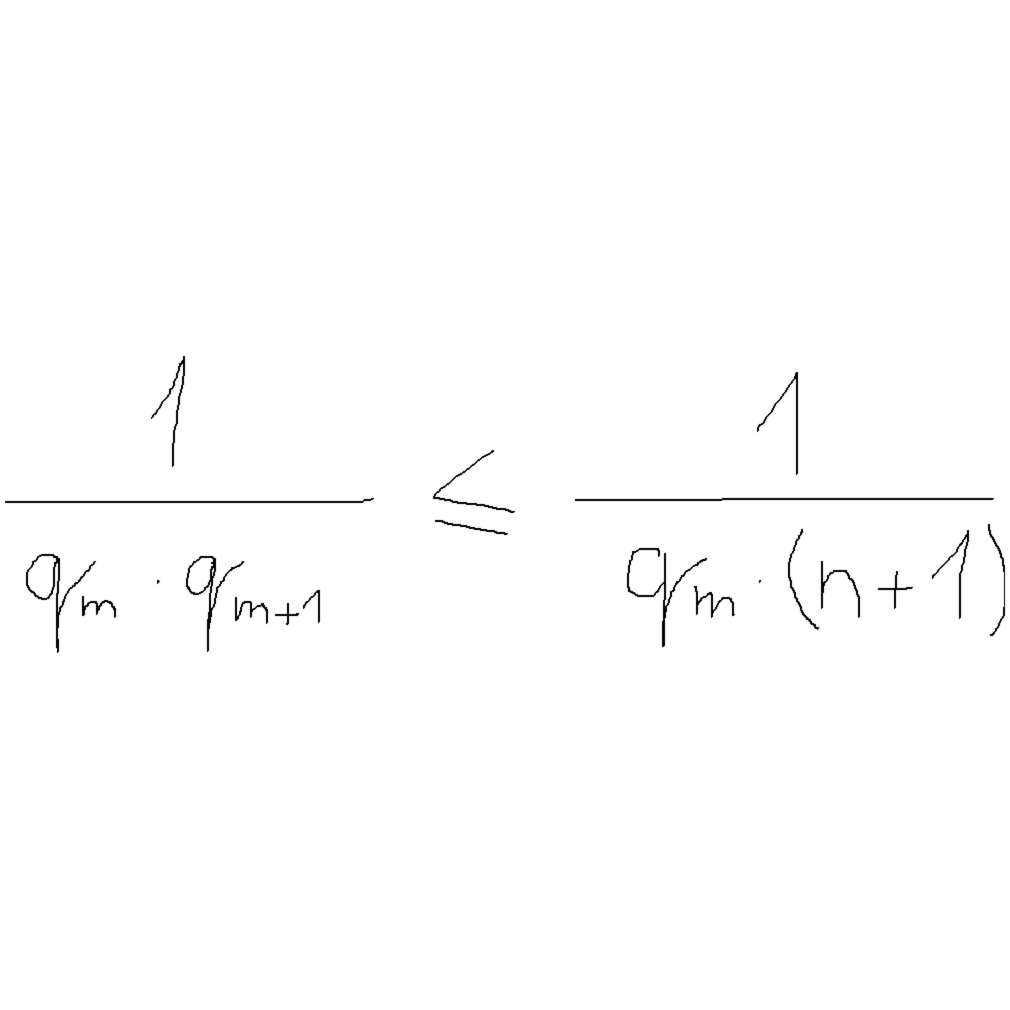 \frac{1}{q_m \cdot q_{m+1}} \leq \frac{1}{q_m \cdot (n+1)}